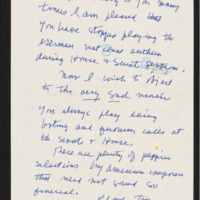 times I am pleased that
you have stopped playing the
German national anthem
during House & Senate sessions.
Now I wish to object
to the very sad music
you always play during
voting and quorum calls at
the Senate & House.
There are plenty of peppier
selections by American composers
that need not sound so
funereal.